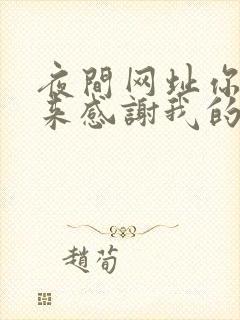 夜間网址你
来感謝我的
趙荀